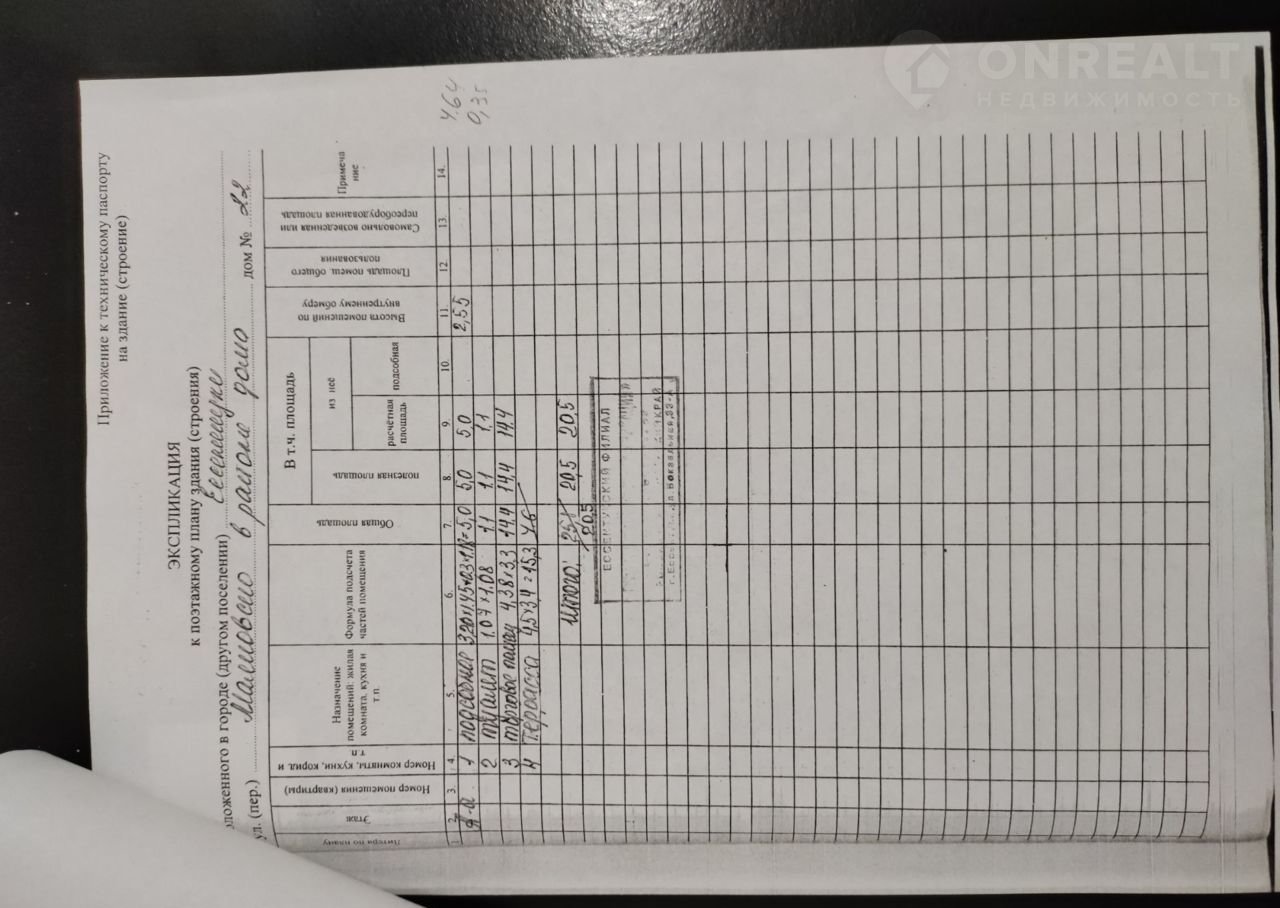 ONREALT
НЕДВИЖИМОСТЬ
Приложение к техническому паспорту
на здание (строение)
ЭКСПЛИКАЦИЯ
к поэтажному плану здания (строения)
оложенного в городе (другом поселении) Ессентуки
ул. (пер.) в районе дома дом № 22
Литера по плану
Этаж
Номер помещения (квартиры)
Номер комнаты, кухни, корид. и т.п
Назначение помещений: жилая комната, кухня и т.п.
Формула подсчета частей помещения
Общая площадь
В т.ч. площадь
полезная площадь
из неё
расчётная площадь
подсобная
Высота помещений по внутреннему обмеру
Площадь помещ. общего пользования
Самовольно возведенная или переоборудованная площадь
Примечание
1 2. 3. 4. 5. 6. 7. 8. 9. 10. 11. 12 13. 14.
1 5,0 5,0 5,0 2,55
2 туалет 1.07×1.08 1.1 1.1 1,1
3 торговое 4,38×3,3 14.4 14,4 14.4
4 Терасса 4,5×3,4 = 15,3
Итого: 20,5 20,5
20,5
4.64
0,35
ЕССЕНТУКСКИЙ ФИЛИАЛ